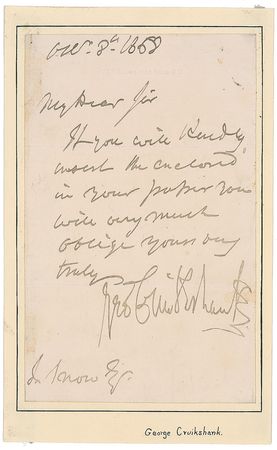 Decr. 8th 1868
My Dear Sir
If you will Kindly
insert the enclosed
in your paper you
will very much
oblige yours very
truly
Geo Cruikshank
Snow Esq.
George Cruikshank.